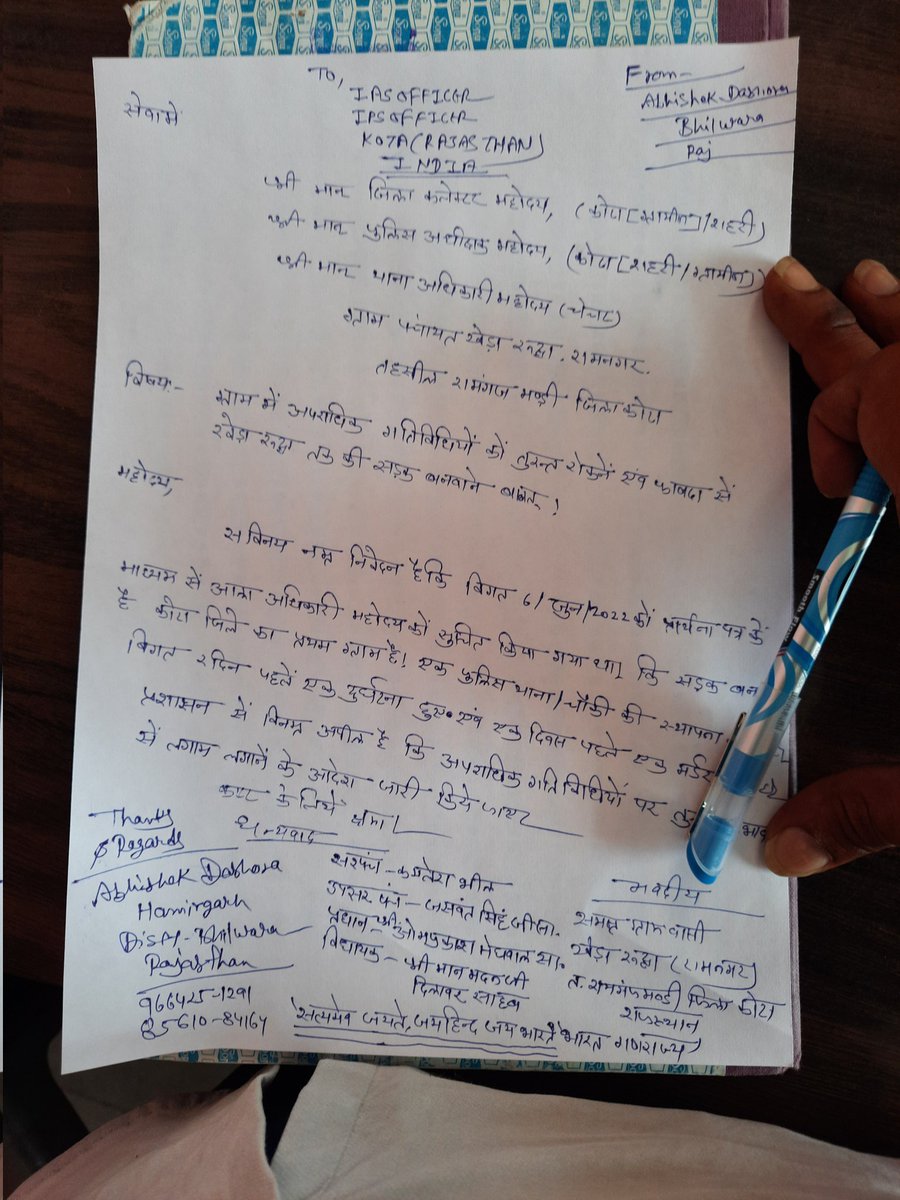 To,
IAS OFFICER
IPS OFFICER
KOTA (RAJASTHAN)
INDIA
From-
Abhishek Dashora
Bhilwara
Raj
सेवामे
श्री मान जिला कलेक्टर महोदय, (कोटा [ग्रामीण]/शहरी)
श्री मान पुलिस अधीक्षक महोदय, (कोटा [शहरी/ग्रामीण])
श्री मान थाना अधिकारी महोदय (चेचट)
ग्राम पंचायत खेड़ा रूद्धा. रामनगर.
तहसील रामंगज मण्ड़ी जिला कोटा
विषय:- ग्राम में अपराधिक गतिविधियों कों तुरन्त रोकनें एंव फावदा सें
खेड़ा रूद्धा तक की सड़क बनवाने बाबत् !
महोदय,
सविनय नम्र निवेदन है कि विगत 6/जुन/2022 कों प्रार्थना पत्र कें
माध्यम सें आला अधिकारी महोदय कों सुचित किया गया था। कि सड़क बन
है कोटा जिले का प्रथम ग्राम है! एक पुलिस थाना/चौकी की स्थापना
विगत 2 दिन पहलें एक दुर्घटना हुए. एंव एक दिवस पहले एक मर्डर
प्रशासन सें विनम्र अपील है कि अपराधिक गति विधियों पर
सें लगाम लगानें के आदेश जारी किये जाय
कष्ट के लियें क्षमा
धन्यवाद
Thanks
& Regards
Abhishek Dashora
Hamirgarh
Dist- Bhilwara
Rajasthan
966425-1291
85610-84164
सरपंच - कमलेश भील
उपसरपंच - जसवंत सिंह जी
प्रधान - श्री ओमप्रकाश मेघवाल सा.
विधायक - श्री मान मदन जी
दिलावर साहेब
भवदीय
समस्त ग्राम वासी
खेड़ा रूद्धा (रामनगर)
त. रामगंजमण्डी जिला कोटा
राजस्थान
सत्यमेव जयते, जय हिन्द, जय भारत भारत गणराज्य
Smooth